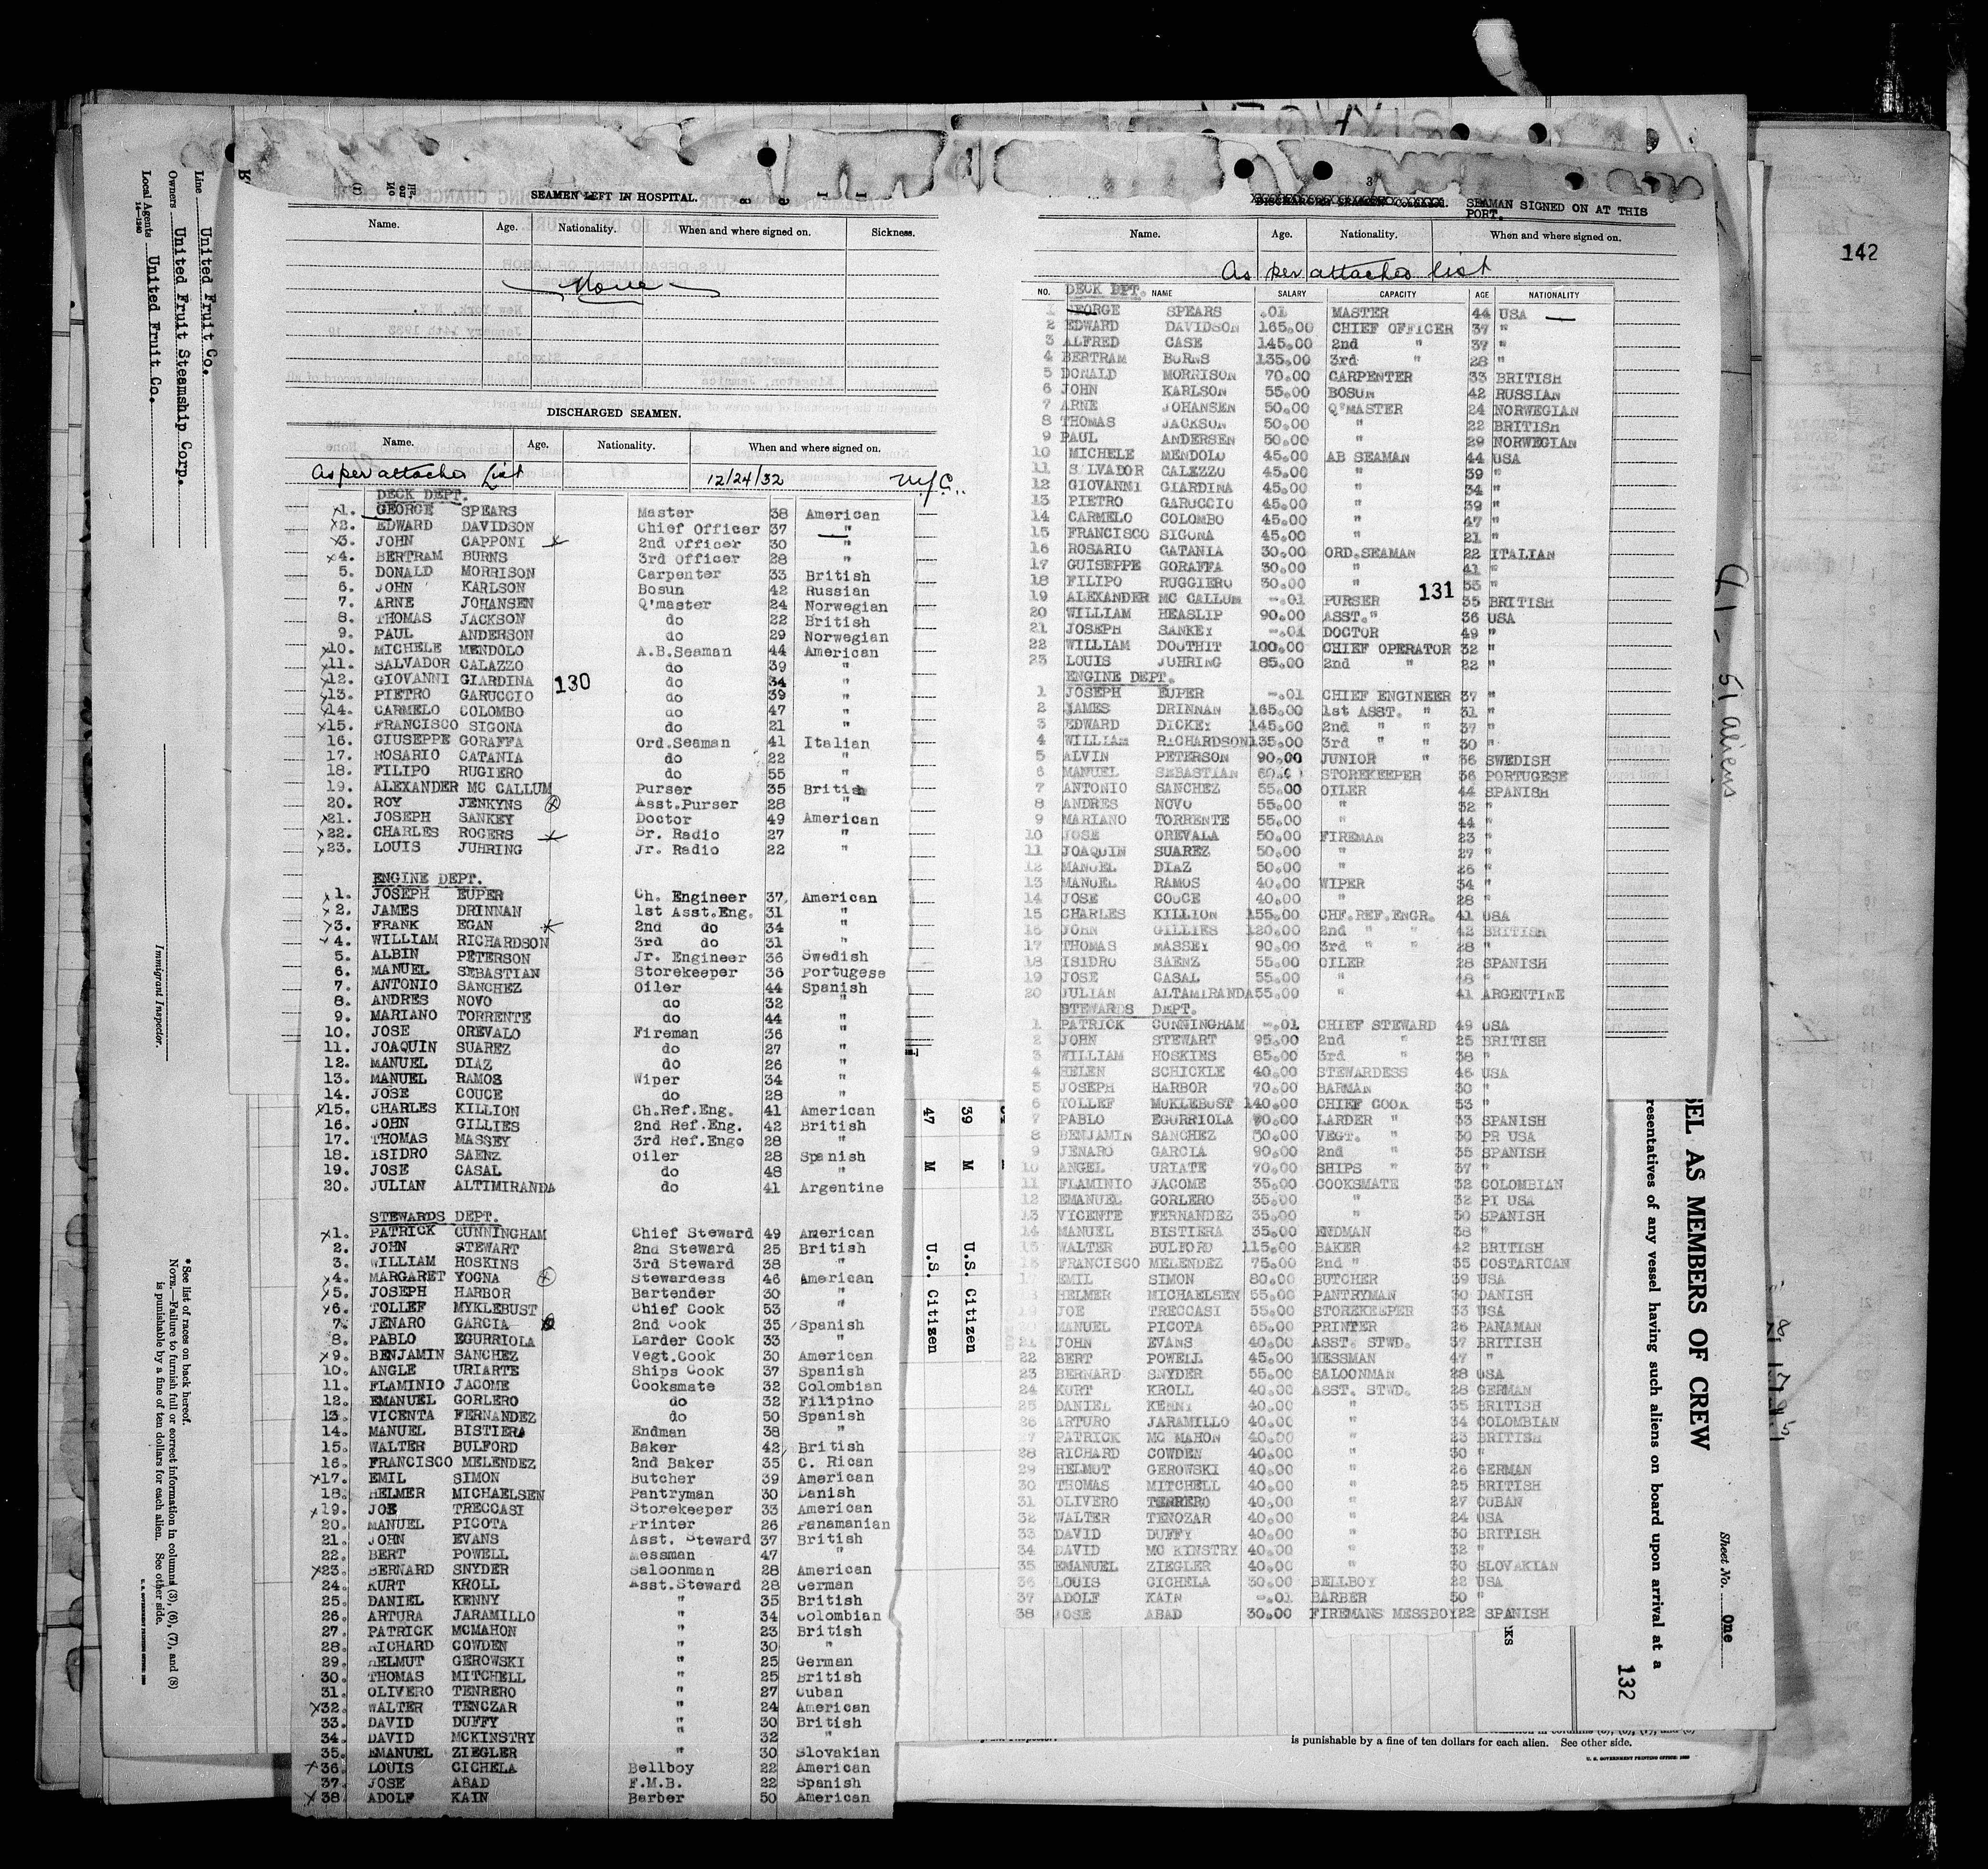 SEAMEN LEFT IN HOSPITAL.
Name. Age. Nationality. When and where signed on. Sickness.
None
DISCHARGED SEAMEN.
Name. Age. Nationality. When and where signed on.
As per attached List 12/24/32
DECK DEPT.
x1. GEORGE SPEARS Master 38 American
x2. EDWARD DAVIDSON Chief Officer 37 "
x3. JOHN CAPPONI 2nd Officer 30 "
x4. BERTRAM BURNS 3rd Officer 28 "
5. DONALD MORRISON Carpenter 33 British
6. JOHN KARLSON Bosun 42 Russian
7. ARNE JOHANSEN Q'master 24 Norwegian
8. THOMAS JACKSON do 22 British
9. PAUL ANDERSON do 29 Norwegian
x10. MICHELE MENDOLO A.B.Seaman 44 American
x11. SALVADOR CALAZZO do 39 "
x12. GIOVANNI GIARDINA do 34 "
130
x13. PIETRO GARUCCIO do 39 "
x14. CARMELO COLOMBO do 47 "
x15. FRANCISCO SIGONA do 21 "
16. GIUSEPPE GORAFFA Ord.Seaman 41 Italian
17. ROSARIO CATANIA do 22 "
18. FILIPO RUGIERO do 55 "
19. ALEXANDER MC CALLUM Purser 35 British
20. ROY JENKYNS Asst.Purser 28 "
x21. JOSEPH SANKEY Doctor 49 American
x22. CHARLES ROGERS Sr. Radio 27 "
x23. LOUIS JUHRING Jr. Radio 22 "
ENGINE DEPT.
x1. JOSEPH EUPER Ch. Engineer 37 American
x2. JAMES DRINNAN 1st Asst.Eng. 31 "
x3. FRANK EGAN 2nd do 34 "
x4. WILLIAM RICHARDSON 3rd do 31 "
5. ALBIN PETERSON Jr. Engineer 36 Swedish
6. MANUEL SEBASTIAN Storekeeper 36 Portugese
7. ANTONIO SANCHEZ Oiler 44 Spanish
8. ANDRES NOVO do 32 "
9. MARIANO TORRENTE do 44 "
10. JOSE OREVALO Fireman 36 "
11. JOAQUIN SUAREZ do 27 "
12. MANUEL DIAZ do 26 "
13. MANUEL RAMOS Wiper 34 "
14. JOSE COUCE do 28 "
x15. CHARLES KILLION Ch.Ref.Eng. 41 American
16. JOHN GILLIES 2nd Ref.Eng. 42 British
17. THOMAS MASSEY 3rd Ref.Engo 28 "
18. ISIDRO SAENZ Oiler 28 Spanish
19. JOSE CASAL do 48 "
20. JULIAN ALTIMIRANDA do 41 Argentine
STEWARDS DEPT.
x1. PATRICK CUNNINGHAM Chief Steward 49 American
2. JOHN STEWART 2nd Steward 25 British
3. WILLIAM HOSKINS 3rd Steward 38 "
x4. MARGARET YOGNA Stewardess 46 American
x5. JOSEPH HARBOR Bartender 30 "
x6. TOLLEF MYKLEBUST Chief Cook 53 "
7. JENARO GARCIA 2nd Cook 35 Spanish
8. PABLO EGURRIOLA Larder Cook 33 "
x9. BENJAMIN SANCHEZ Vegt.Cook 30 American
10. ANGLE URIARTE Ships Cook 37 Spanish
11. FLAMINIO JACOME Cooksmate 32 Colombian
12. EMANUEL GORLERO do 32 Filipino
13. VICENTA FERNANDEZ do 50 Spanish
14. MANUEL BISTIERA Endman 38 "
15. WALTER BULFORD Baker 42 British
16. FRANCISCO MELENDEZ 2nd Baker 35 C. Rican
x17. EMIL SIMON Butcher 39 American
18. HELMER MICHAELSEN Pantryman 30 Danish
x19. JOE TRECCASI Storekeeper 33 American
20. MANUEL PICOTA Printer 26 Panamanian
21. JOHN EVANS Asst. Steward 37 British
22. BERT POWELL Messman 47 "
x23. BERNARD SNYDER Saloonman 28 American
24. KURT KROLL Asst.Steward 28 German
25. DANIEL KENNY " 35 British
26. ARTURA JARAMILLO " 34 Colombian
27. PATRICK MCMAHON " 23 British
28. RICHARD COWDEN " 30 "
29. HELMUT GEROWSKI " 25 German
30. THOMAS MITCHELL " 25 British
31. OLIVERO TENRERO " 27 Cuban
x32. WALTER TENCZAR " 24 American
33. DAVID DUFFY " 30 British
34. DAVID MCKINSTRY " 32 "
35. EMANUEL ZIEGLER " 30 Slovakian
x36. LOUIS CICHELA Bellboy 22 American
37. JOSE ABAD F.M.B. 22 Spanish
x38. ADOLF KAIN Barber 50 American
3
SEAMAN SIGNED ON AT THIS
PORT.
Name. Age. Nationality. When and where signed on.
As per attached list
NO. DECK DPT. NAME SALARY CAPACITY AGE NATIONALITY
1 GEORGE SPEARS .01 MASTER 44 USA
2 EDWARD DAVIDSON 165.00 CHIEF OFFICER 37 "
3 ALFRED CASE 145.00 2nd " 37 "
4 BERTRAM BURNS 135.00 3rd " 28 "
5 DONALD MORRISON 70.00 CARPENTER 33 BRITISH
6 JOHN KARLSON 55.00 BOSUN 42 RUSSIAN
7 ARNE JOHANSEN 50.00 Q'MASTER 24 NORWEGIAN
8 THOMAS JACKSON 50.00 " 22 BRITISH
9 PAUL ANDERSEN 50.00 " 29 NORWEGIAN
10 MICHELE MENDOLO 45.00 AB SEAMAN 44 USA
11 SALVADOR CALEZZO 45.00 " 39 "
12 GIOVANNI GIARDINA 45.00 " 34 "
13 PIETRO GARUCCIO 45.00 " 39 "
14 CARMELO COLOMBO 45.00 " 47 "
15 FRANCISCO SIGONA 45.00 " 21 "
16 ROSARIO CATANIA 30.00 ORD.SEAMAN 22 ITALIAN
17 GUISEPPE GORAFFA 30.00 " 41 "
18 FILIPO RUGGIERO 30.00 " 53 "
131
19 ALEXANDER MC CALLUM -.01 PURSER 35 BRITISH
20 WILLIAM HEASLIP 90.00 ASST." 36 USA
21 JOSEPH SANKEY -.01 DOCTOR 49 "
22 WILLIAM DOUTHIT 100.00 CHIEF OPERATOR 32 "
23 LOUIS JUHRING 85.00 2nd " 22 "
ENGINE DEPT.
1 JOSEPH EUPER -.01 CHIEF ENGINEER 37 "
2 JAMES DRINNAN 165.00 1st ASST. " 31 "
3 EDWARD DICKEY 145.00 2nd " " 37 "
4 WILLIAM RICHARDSON 135.00 3rd " " 30 "
5 ALVIN PETERSON 90.00 JUNIOR " 36 SWEDISH
6 MANUEL SEBASTIAN 60.00 STOREKEEPER 36 PORTUGESE
7 ANTONIO SANCHEZ 55.00 OILER 44 SPANISH
8 ANDRES NOVO 55.00 " 32 "
9 MARIANO TORRENTE 55.00 " 44 "
10 JOSE OREVALA 50.00 FIREMAN 23 "
11 JOAQUIN SUAREZ 50.00 " 27 "
12 MANUEL DIAZ 50.00 " 26 "
13 MANUEL RAMOS 40.00 WIPER 34 "
14 JOSE COUCE 40.00 " 28 "
15 CHARLES KILLION 155.00 CHF.REF.ENGR. 41 USA
16 JOHN GILLIES 120.00 2nd " " 42 BRITISH
17 THOMAS MASSEY 90.00 3rd " " 28 "
18 ISIDRO SAENZ 55.00 OILER 28 SPANISH
19 JOSE CASAL 55.00 " 48 "
20 JULIAN ALTAMIRANDA 55.00 " 41 ARGENTINE
STEWARDS DEPT.
1 PATRICK CUNNINGHAM -.01 CHIEF STEWARD 49 USA
2 JOHN STEWART 95.00 2nd " 25 BRITISH
3 WILLIAM HOSKINS 85.00 3rd " 38 "
4 HELEN SCHICKLE 40.00 STEWARDESS 46 USA
5 JOSEPH HARBOR 70.00 BARMAN 30 "
6 TOLLEF MUKLEBUST 140.00 CHIEF COOK 53 "
7 PABLO EGURRIOLA 90.00 LARDER " 33 SPANISH
8 BENJAMIN SANCHEZ 50.00 VEGT. " 30 PR USA
9 JENARO GARCIA 90.00 2nd " 35 SPANISH
10 ANGEL URIATE 70.00 SHIPS " 37 "
11 FLAMINIO JACOME 35.00 COOKSMATE 32 COLOMBIAN
12 EMANUEL GORLERO 35.00 " 32 PI USA
13 VICENTE FERNANDEZ 35.00 " 50 SPANISH
14 MANUEL BISTIERA 35.00 ENDMAN 38 "
15 WALTER BULFORD 115.00 BAKER 42 BRITISH
16 FRANCISCO MELENDEZ 75.00 2nd " 35 COSTARICAN
17 EMIL SIMON 80.00 BUTCHER 39 USA
18 HELMER MICHAELSEN 55.00 PANTRYMAN 30 DANISH
19 JOE TRECCASI 55.00 STOREKEEPER 33 USA
20 MANUEL PICOTA 65.00 PRINTER 26 PANAMAN
21 JOHN EVANS 40.00 ASST. STWD. 37 BRITISH
22 BERT POWELL 45.00 MESSMAN 47 "
23 BERNARD SNYDER 55.00 SALOONMAN 28 USA
24 KURT KROLL 40.00 ASST. STWD. 28 GERMAN
25 DANIEL KENNY 40.00 " 35 BRITISH
26 ARTURO JARAMILLO 40.00 " 34 COLOMBIAN
27 PATRICK MC MAHON 40.00 " 23 BRITISH
28 RICHARD COWDEN 40.00 " 30 "
29 HELMUT GEROWSKI 40.00 " 26 GERMAN
30 THOMAS MITCHELL 40.00 " 25 BRITISH
31 OLIVERO TENRERO 40.00 " 27 CUBAN
32 WALTER TENOZAR 40.00 " 24 USA
33 DAVID DUFFY 40.00 " 30 BRITISH
34 DAVID MC KINSTRY 40.00 " 32 "
35 EMANUEL ZIEGLER 40.00 " 30 SLOVAKIAN
36 LOUIS CICHELA 30.00 BELLBOY 22 USA
37 ADOLF KAIN -.01 BARBER 50 "
38 JOSE ABAD 30.00 FIREMANS MESSBOY 22 SPANISH
Line United Fruit Co.
Owners United Fruit Steamship Corp.
Local Agents United Fruit Co.
14-1240
Immigrant Inspector.
*See list of races on back hereof.
NOTE.—Failure to furnish full or correct information in columns (3), (6), (7), and (8)
is punishable by a fine of ten dollars for each alien. See other side.
47 M U.S. Citizen
39 M U.S. Citizen
SEL AS MEMBERS OF CREW
resentatives of any vessel having such aliens on board upon arrival at a
Sheet No. One
132
51 aliens
142
is punishable by a fine of ten dollars for each alien. See other side.